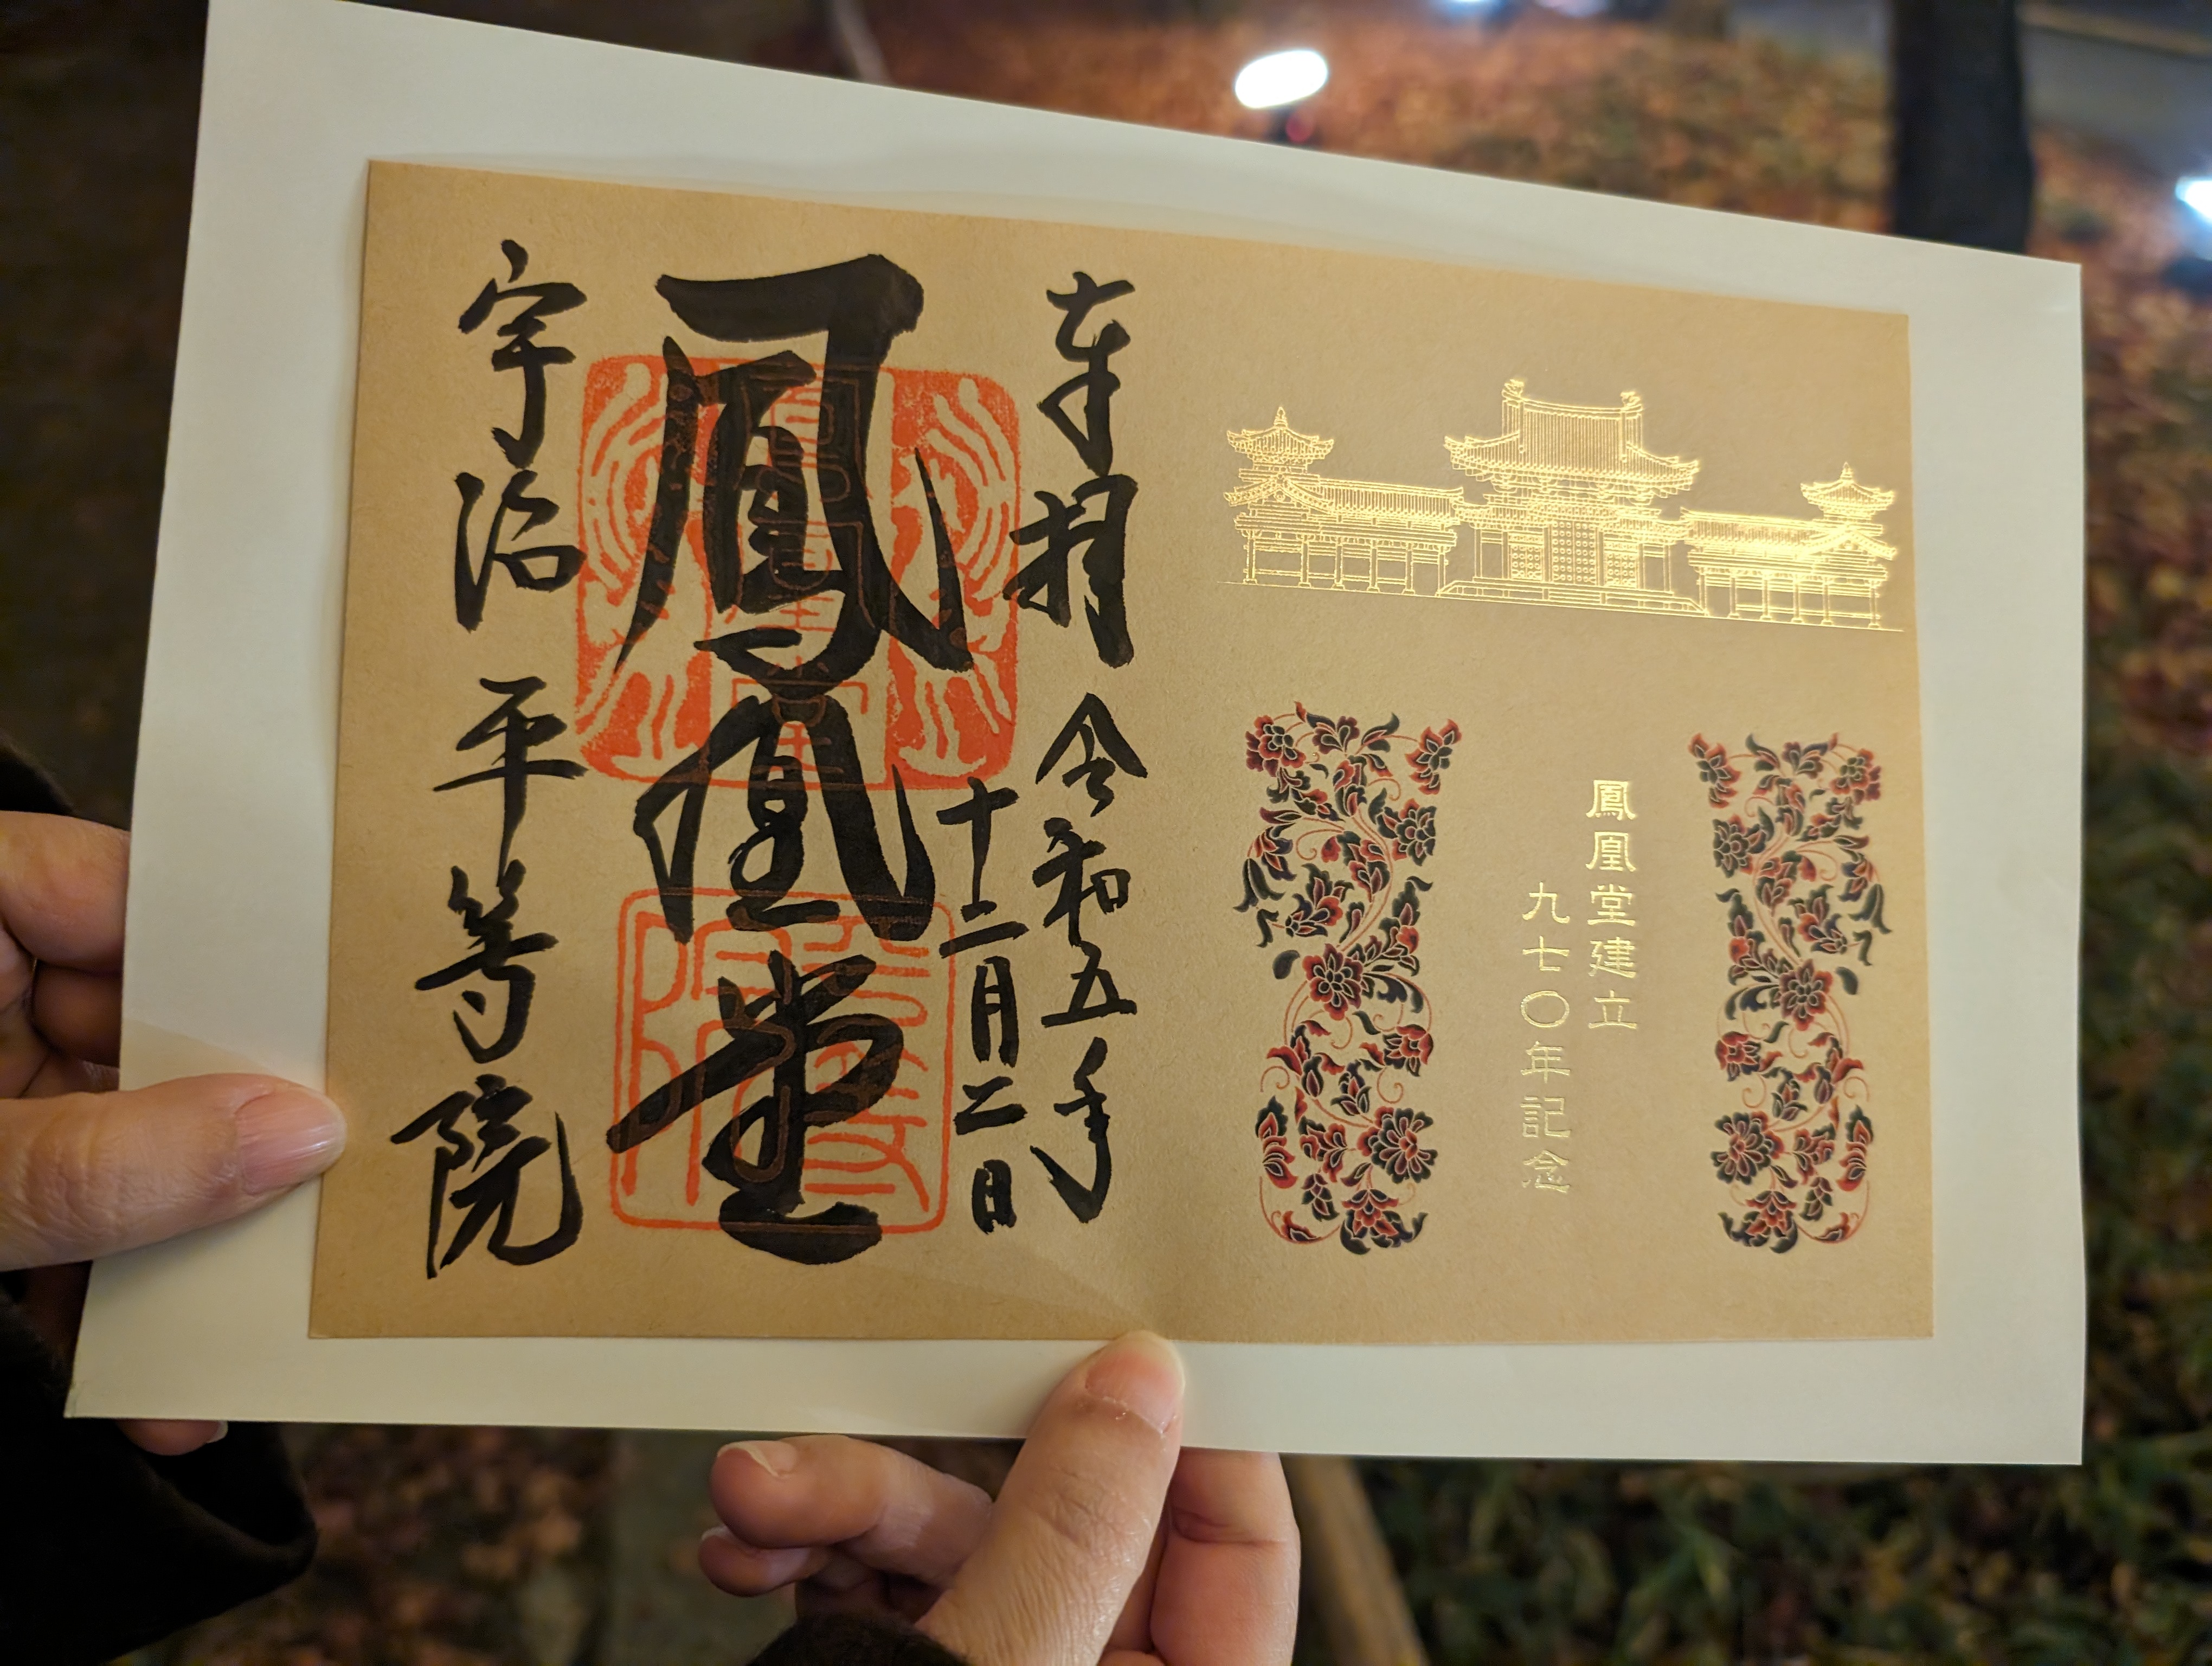 鳳凰堂建立
九七〇年記念
奉拝 令和五年
十二月二日
鳳凰堂
宇治 平等院